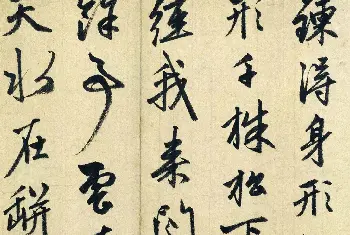 鍊得身形
形千株松下
經我來問
餘事雲
天水在缾